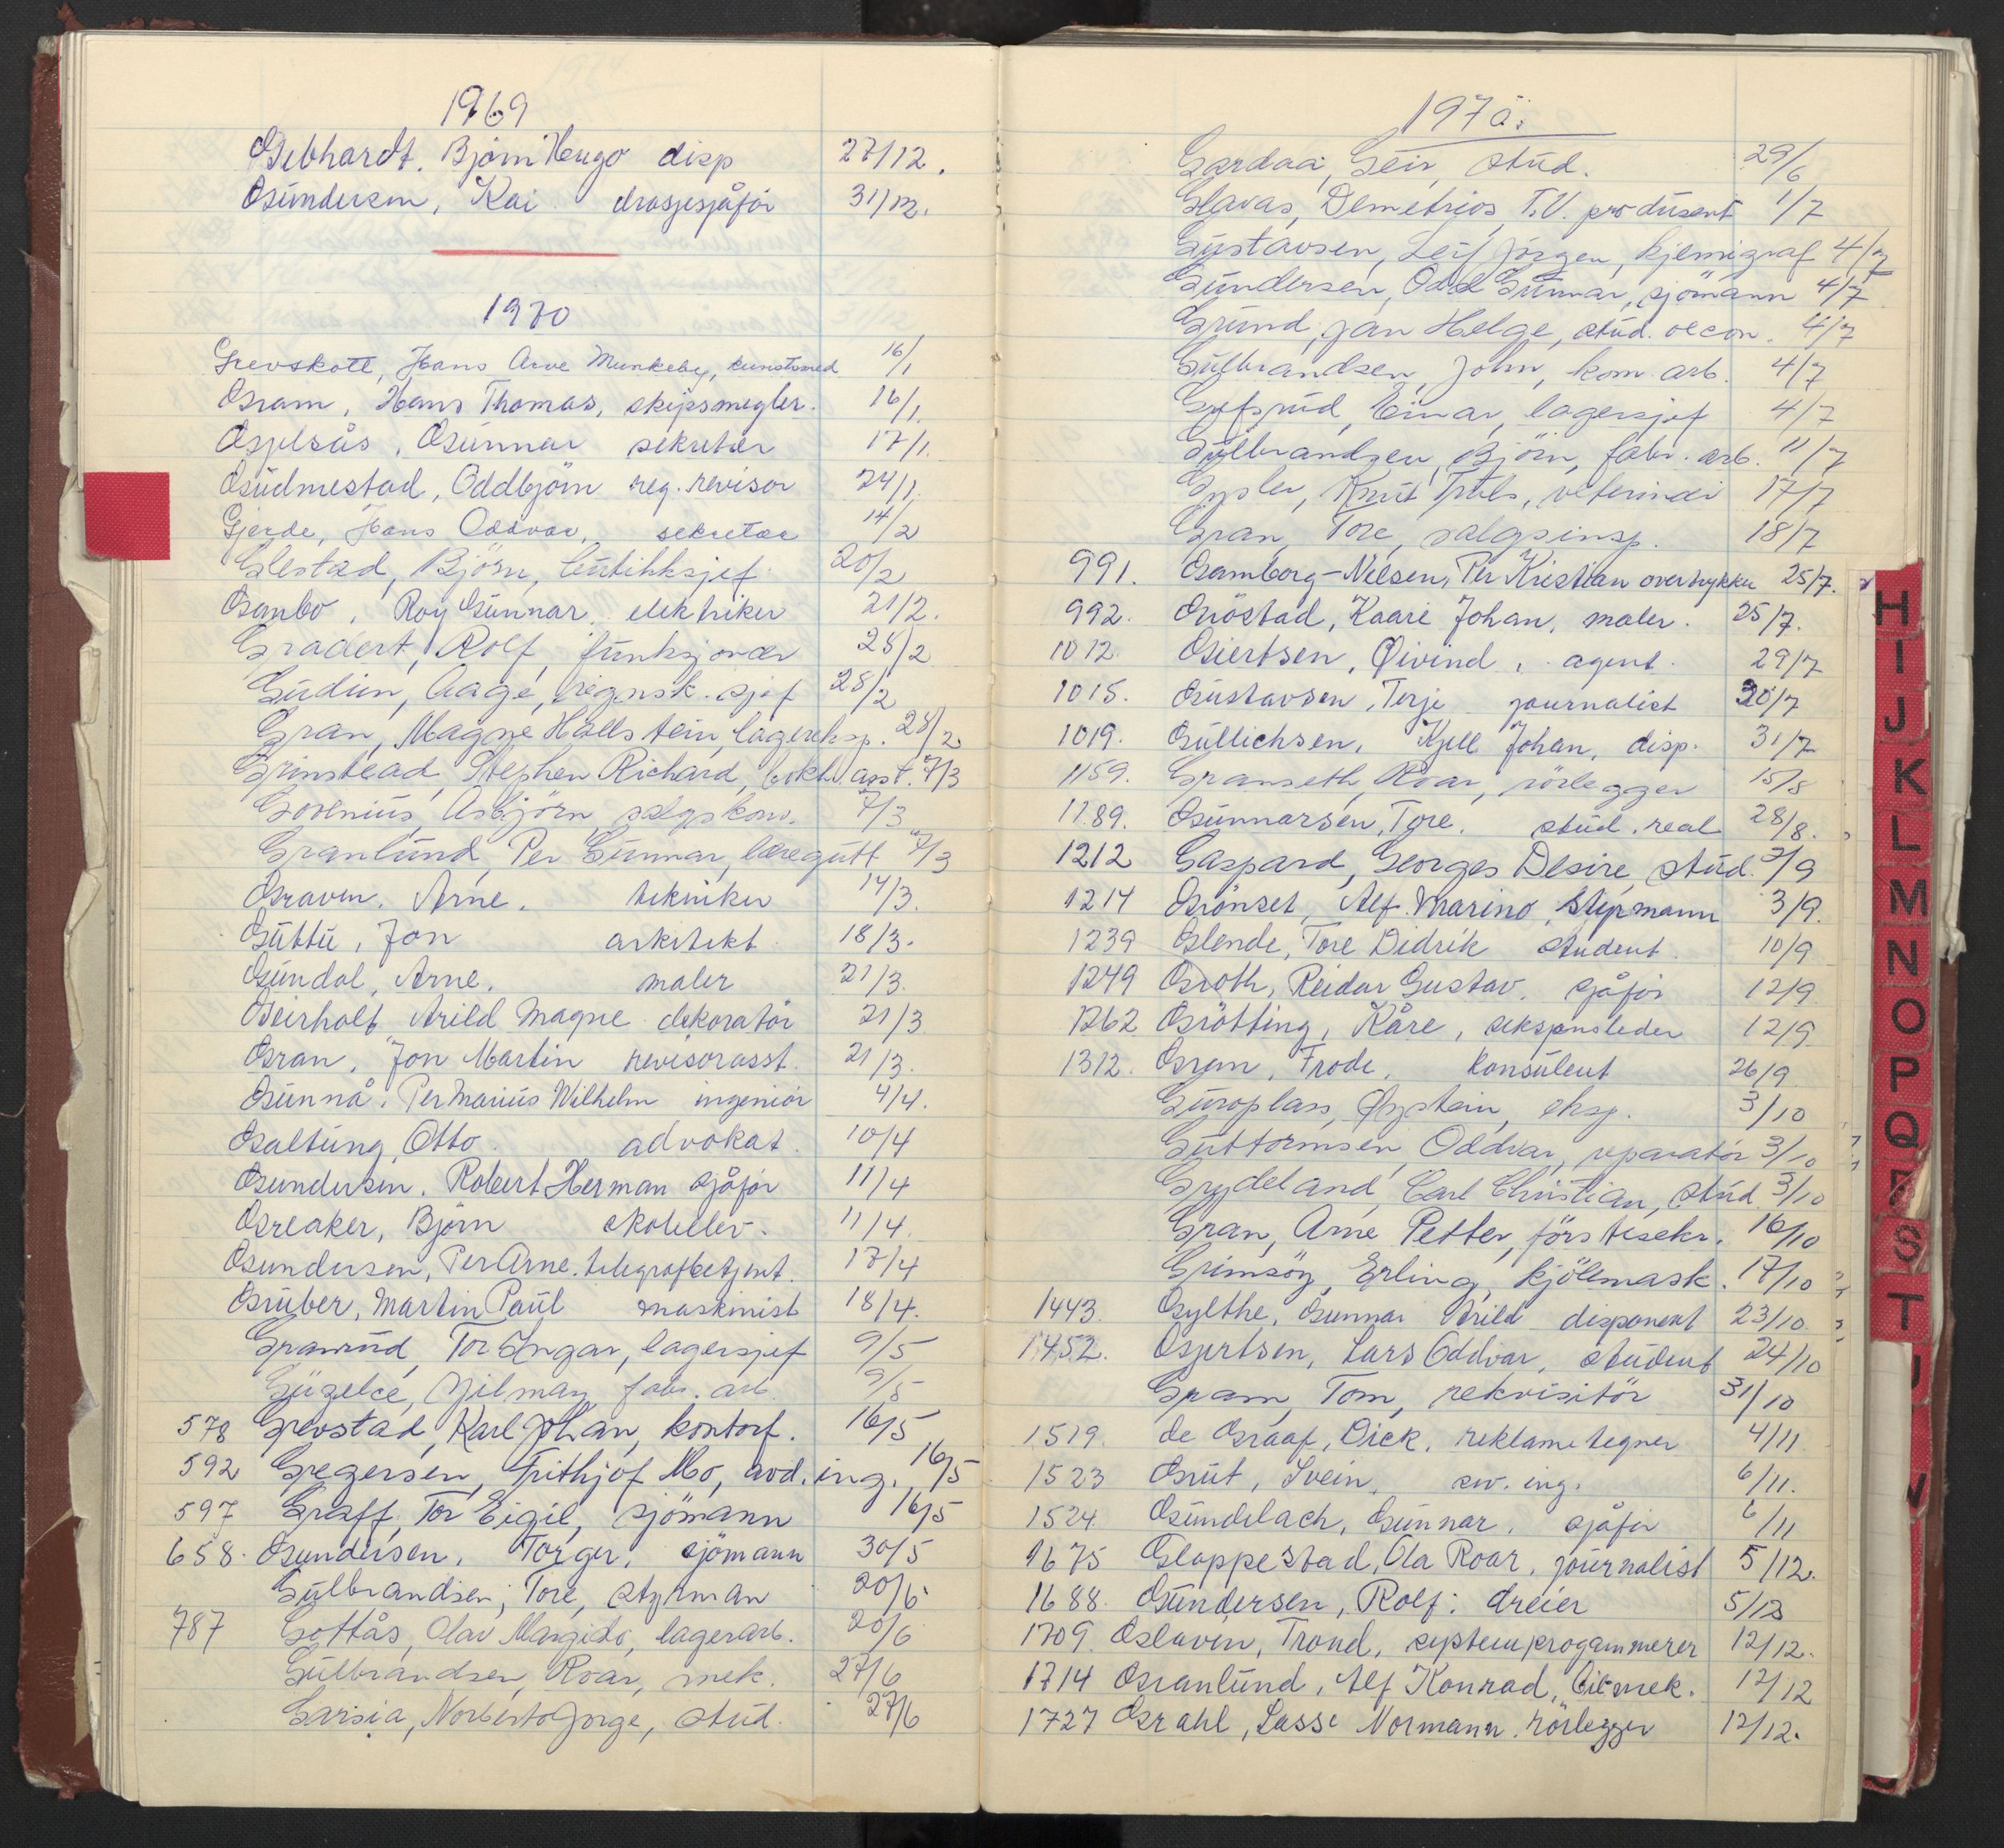 1969
Gebhardt, Bjørn Hugo disp 27/12.
Gundersen, Kai drosjesjåfør 31/12.
1970
Grevskott, Hans Arve Munkeby, kunstsmed 16/1
Gram, Hans Thomas, skipsmegler. 16/1.
Gjelsås, Gunnar sekretær 17/1.
Gudmestad, Oddbjørn reg. revisor 24/1
Gjerde, Hans Oddvar, sekretær 14/2
Glestad, Björn, butikksjef 20/2
Gambo, Roy Gunnar. elektriker 21/2.
Gradert, Rolf, funksjonær 28/2
Gudim, Aage, regnsk. sjef 28/2
Gran, Magne Hallstein, lagereksp. 28/2
Grinstead, Stephen Richard, bokh. asst. 7/3
Govenius, Asbjörn salgskons. 7/3
Granlund, Per Gunnar, læregutt 7/3
Graven, Arne. tekniker 14/3.
Guttu, Jon arkitekt 18/3.
Gundal, Arne. maler 21/3.
Geirholt Arild Magne dekoratør 21/3
Gran, Jon Martin revisorasst. 21/3.
Gunnå, Per Marius Wilhelm ingeniør 4/4.
Galtung, Otto. advokat 10/4
Gundersen. Robert Herman sjåfør 11/4
Greaker, Bjørn skoleelev. 11/4.
Gundersen, Per Arne. telegrafbetjent. 17/4
Gruber, Martin Paul maskinist 18/4.
Granrud, Tor Ingar, lagersjef 9/5
Güzelce, Yilmaz, fabr. arb. 9/5
578 Grevstad, Karl Johan, kontorf. 16/5
592 Gregersen, Frithjof Mo, avd. ing. 16/5
597 Graff, Tor Eigil, sjömann 16/5
658. Gundersen, Torger, sjømann 30/5
Gulbrandsen, Tore, styrman 20/6
787 Gottås, Olav Margido, lagerarb. 20/6
Gulbrandsen, Roar, mek. 27/6
Garsia, Norberto Jorge, stud. 27/6
1970:
Gardaa, Geir, stud. 29/6
Glavas, Demetrios, T.V. produsent 1/7
Gustavsen, Leif Jörgen, kjemigraf 4/7
Gundersen, Odd Gunnar, sjömann 4/7
Grund, Jan Helge, stud. oecon. 4/7
Gulbrandsen, John, kom. arb. 4/7
Einar, lagersjef 4/7
Gulbrandsen, Björn, fabr. arb. 11/7
Gysler, Knut Truls, veterinær 17/7
Gran, Tore, salgsinsp. 18/7
991. Gamborg-Nielsen, Per Kristian overtrykker 25/7.
992. Grøstad, Kaare Johan, maler. 25/7.
1012. Giertsen, Øivind, agent. 29/7
1015. Gustavsen, Terje journalist 30/7
1019. Gullichsen, Kjell Johan, disp. 31/7
1159. Granseth, Roar, rörlegger 15/8
1189. Gunnarsen, Tore. stud. real 28/8.
1212 Gaspard, Georges Desire, stud. 3/9
1214 Grønset, Alf Marino, Styrmann 3/9.
1239 Glende, Tore Didrik student. 10/9
1249 Groth, Reidar Gustav. sjåfør 12/9
1262 Grøtting, Kåre, seksjonsleder 12/9
1312. Gram, Frode. konsulent 26/9
Guroplass, Øystein, eksp. 3/10
Guttormsen, Oddvar, reparatör 3/10
Grydeland, Carl Christian, stud. 3/10
Gran, Arne Petter, förstesekr. 16/10
Grimsöy, Erling, kjölemask. 17/10
1443. Gylthe, Gunnar Arild disponent 23/10
1452. Gjertsen, Lars Oddvar, student 24/10
Gram, Tom, rekvisitör 31/10
1519. de Graaf, Dick, reklametegner 4/11
1523 Grut, Svein, siv. ing. 6/11.
1524. Gundelach, Gunnar. sjåfør 6/11
1675 Gloppestad, Ola Roar, journalist 5/12.
1688. Gundersen, Rolf: dreier 5/12
1709. Glaven, Trond, systemprogammerer 12/12.
1714 Granlund, Alf Konrad, bilmek. 12/12
1727 Grahl, Lasse Normann. rørlegger 12/12.
H
I
J
K
L
M
N
O
P
Q
R
S
T